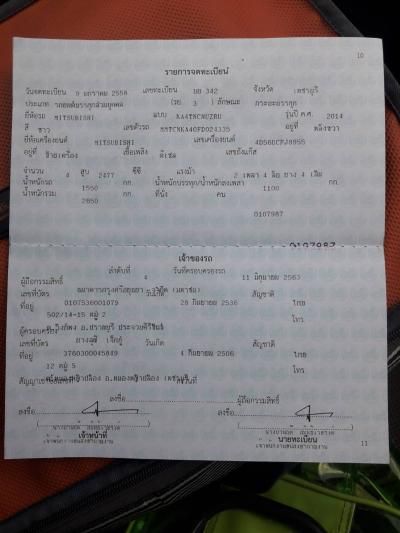 10
รายการจดทะเบียน
วันจดทะเบียน 9 มกราคม 2558 เลขทะเบียน บม 342 จังหวัด เพชรบุรี
ประเภท รถยนต์บรรทุกส่วนบุคคล (รย 3 ) ลักษณะ กระบะบรรทุก
ยี่ห้อรถ MITSUBISHI แบบ KA4TNCNUZRU รุ่นปี ค.ศ. 2014
สี ขาว เลขตัวรถ อยู่ที่
ยี่ห้อเครื่องยนต์ MITSUBISHI เลขเครื่องยนต์
อยู่ที่ เชื้อเพลิง ดีเซล เลขถังแก๊ส
จำนวน 4 สูบ 2477 ซีซี แรงม้า 2 เพลา 4 ล้อ ยาง 4 เส้น
น้ำหนักรถ 1550 กก. น้ำหนักบรรทุก/น้ำหนักลงเพลา 1100 กก.
น้ำหนักรวม 2650 กก. ที่นั่ง คน
0107987
0107987
เจ้าของรถ
ลำดับที่ 4 วันที่ครอบครองรถ 11 มิถุนายน 2563
ผู้ถือกรรมสิทธิ์ ธนาคารกรุงศรีอยุธยา จำกัด (มหาชน)
เลขที่บัตร 0107536001079 วันเกิด 28 กันยายน 2536 สัญชาติ ไทย
ที่อยู่ 502/14-15 หมู่ 2 โทร.
อ.ปราณบุรี ประจวบคีรีขันธ์
ผู้ครอบครอง
เลขที่บัตร 3760300045849 วันเกิด 4 กันยายน 2506 สัญชาติ ไทย
ที่อยู่ 12 หมู่ 5 โทร.
อ.หนองหญ้าปล้อง เพชรบุรี
ลงชื่อ ผู้ถือกรรมสิทธิ์
ลงชื่อ ลงชื่อ
เจ้าหน้าที่ นายทะเบียน
11